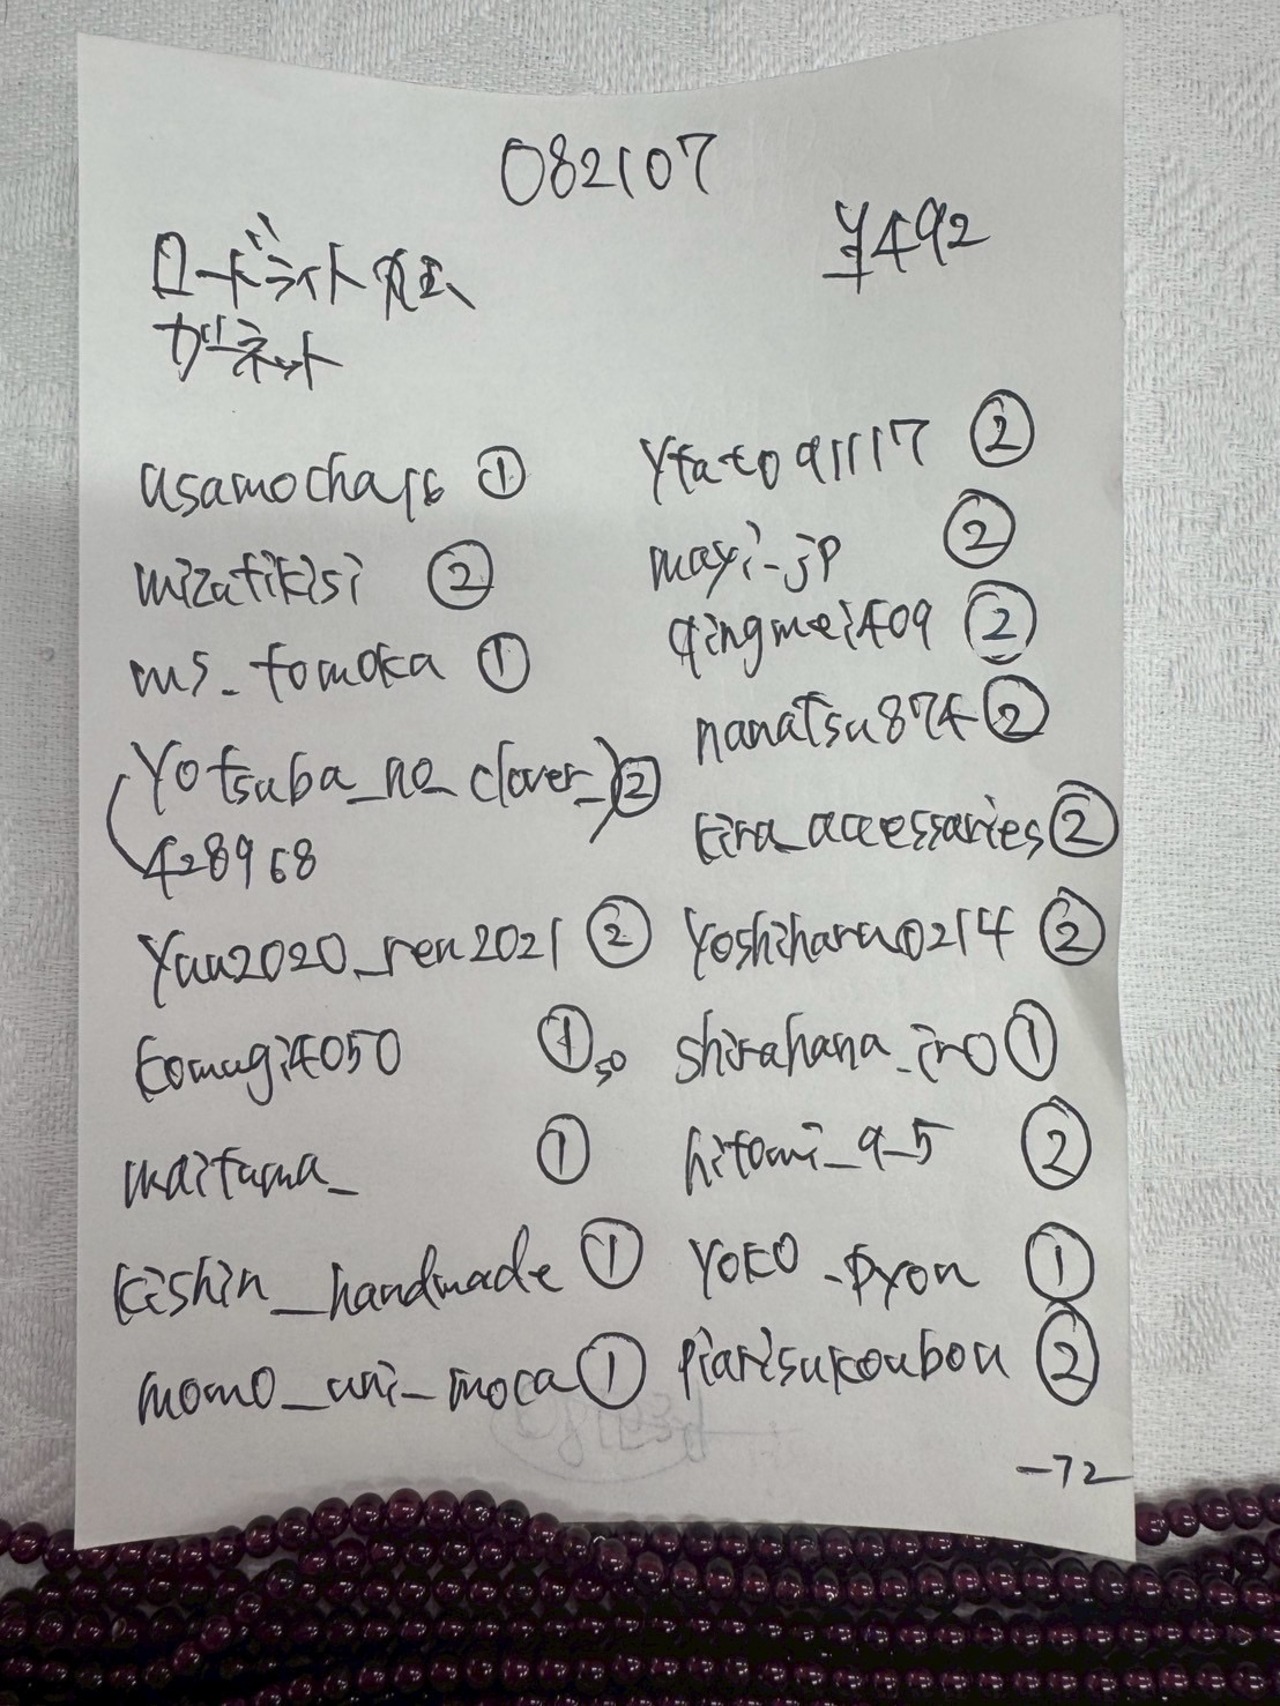 082107
¥492
ロードライト
ガーネット
asamocha16 ①
mizutikisi ②
ms_tomoka ①
(Yotsuba_no_clover_) ②
428968
Yuu2020_ren2021 ②
komugi4050 ① 50
maituma_ ①
kishin_handmade ①
momo_uni_moca ①
Ytato091117 ②
mayi_jp ②
qingmei409 ②
nanatsu874 ②
kira_accessaries ②
Yoshiharu0214 ②
shirahana_iro ①
hitomi_9_5 ②
YOKO_pyon ①
piarisukoubou ②
-72